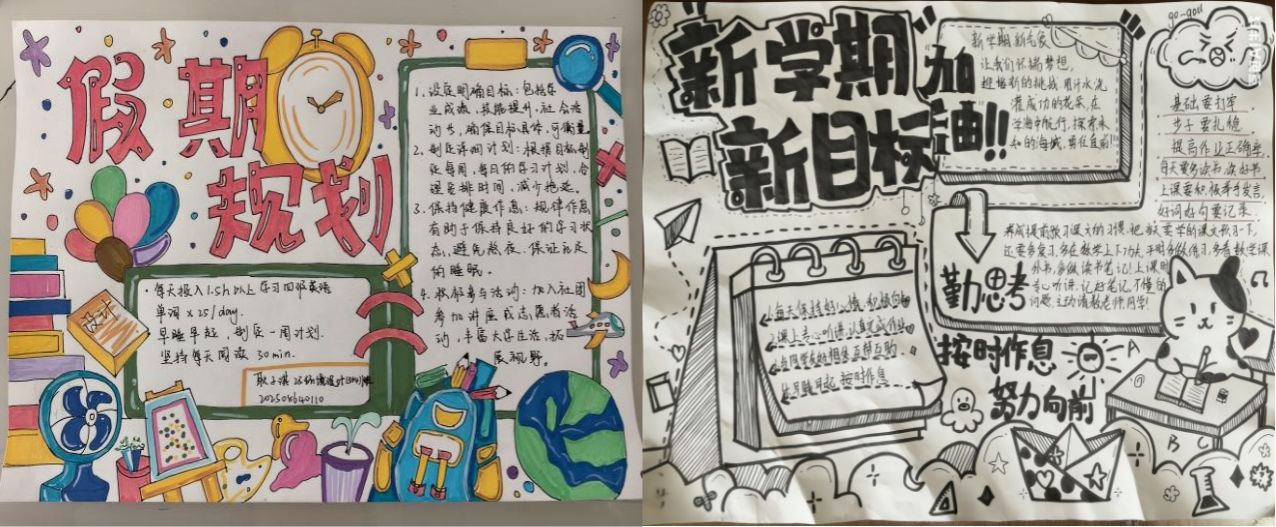 假期
规划
1. 设定明确目标：包括学
业成绩，技能提升，社会活
动等，确保目标具体，可衡量
2. 制定详细计划：根据目标制
定每周，每日的学习计划，合
理安排时间，减少拖延。
3. 保持健康作息：规律作息
有助于保持良好的学习状
态，避免熬夜，保证充足
的睡眠。
4. 积极参与活动：加入社团
参加讲座或志愿者活
动，丰富大学生活，拓
展视野。
·每天投入1.5h以上学习四级英语
单词 x 25/day.
早睡早起，制定一周计划.
坚持每天阅读 30min.
202508640110
设计
新学期
新目标
加油!!
新学期 新气象
让我们怀揣梦想,
迎接新的挑战,用汗水浇
灌成功的花朵,在
学海中航行,探索未
知的海域,勇往直前!!
go-gou
基础要打牢,
步子要扎稳
提高作业正确率,
每天要多读书,读好书
上课要积极举手发言,
好词好句要记录.
养成提前预习课文的习惯,把每天要学的课文预习一下,
还要多复习,多在数学上下功夫,平时多做练习,多看数学课
外书,多做读书笔记!上课时
专心听讲,记好笔记,不懂的
问题,主动请教老师同学!
勤思考
1.每天保持好心情,积极向
2.课上专心听讲,认真完成作业
3.与同学友好相处互帮互助.
4.早睡早起 按时作息
按时作息
努力向前
A
B C